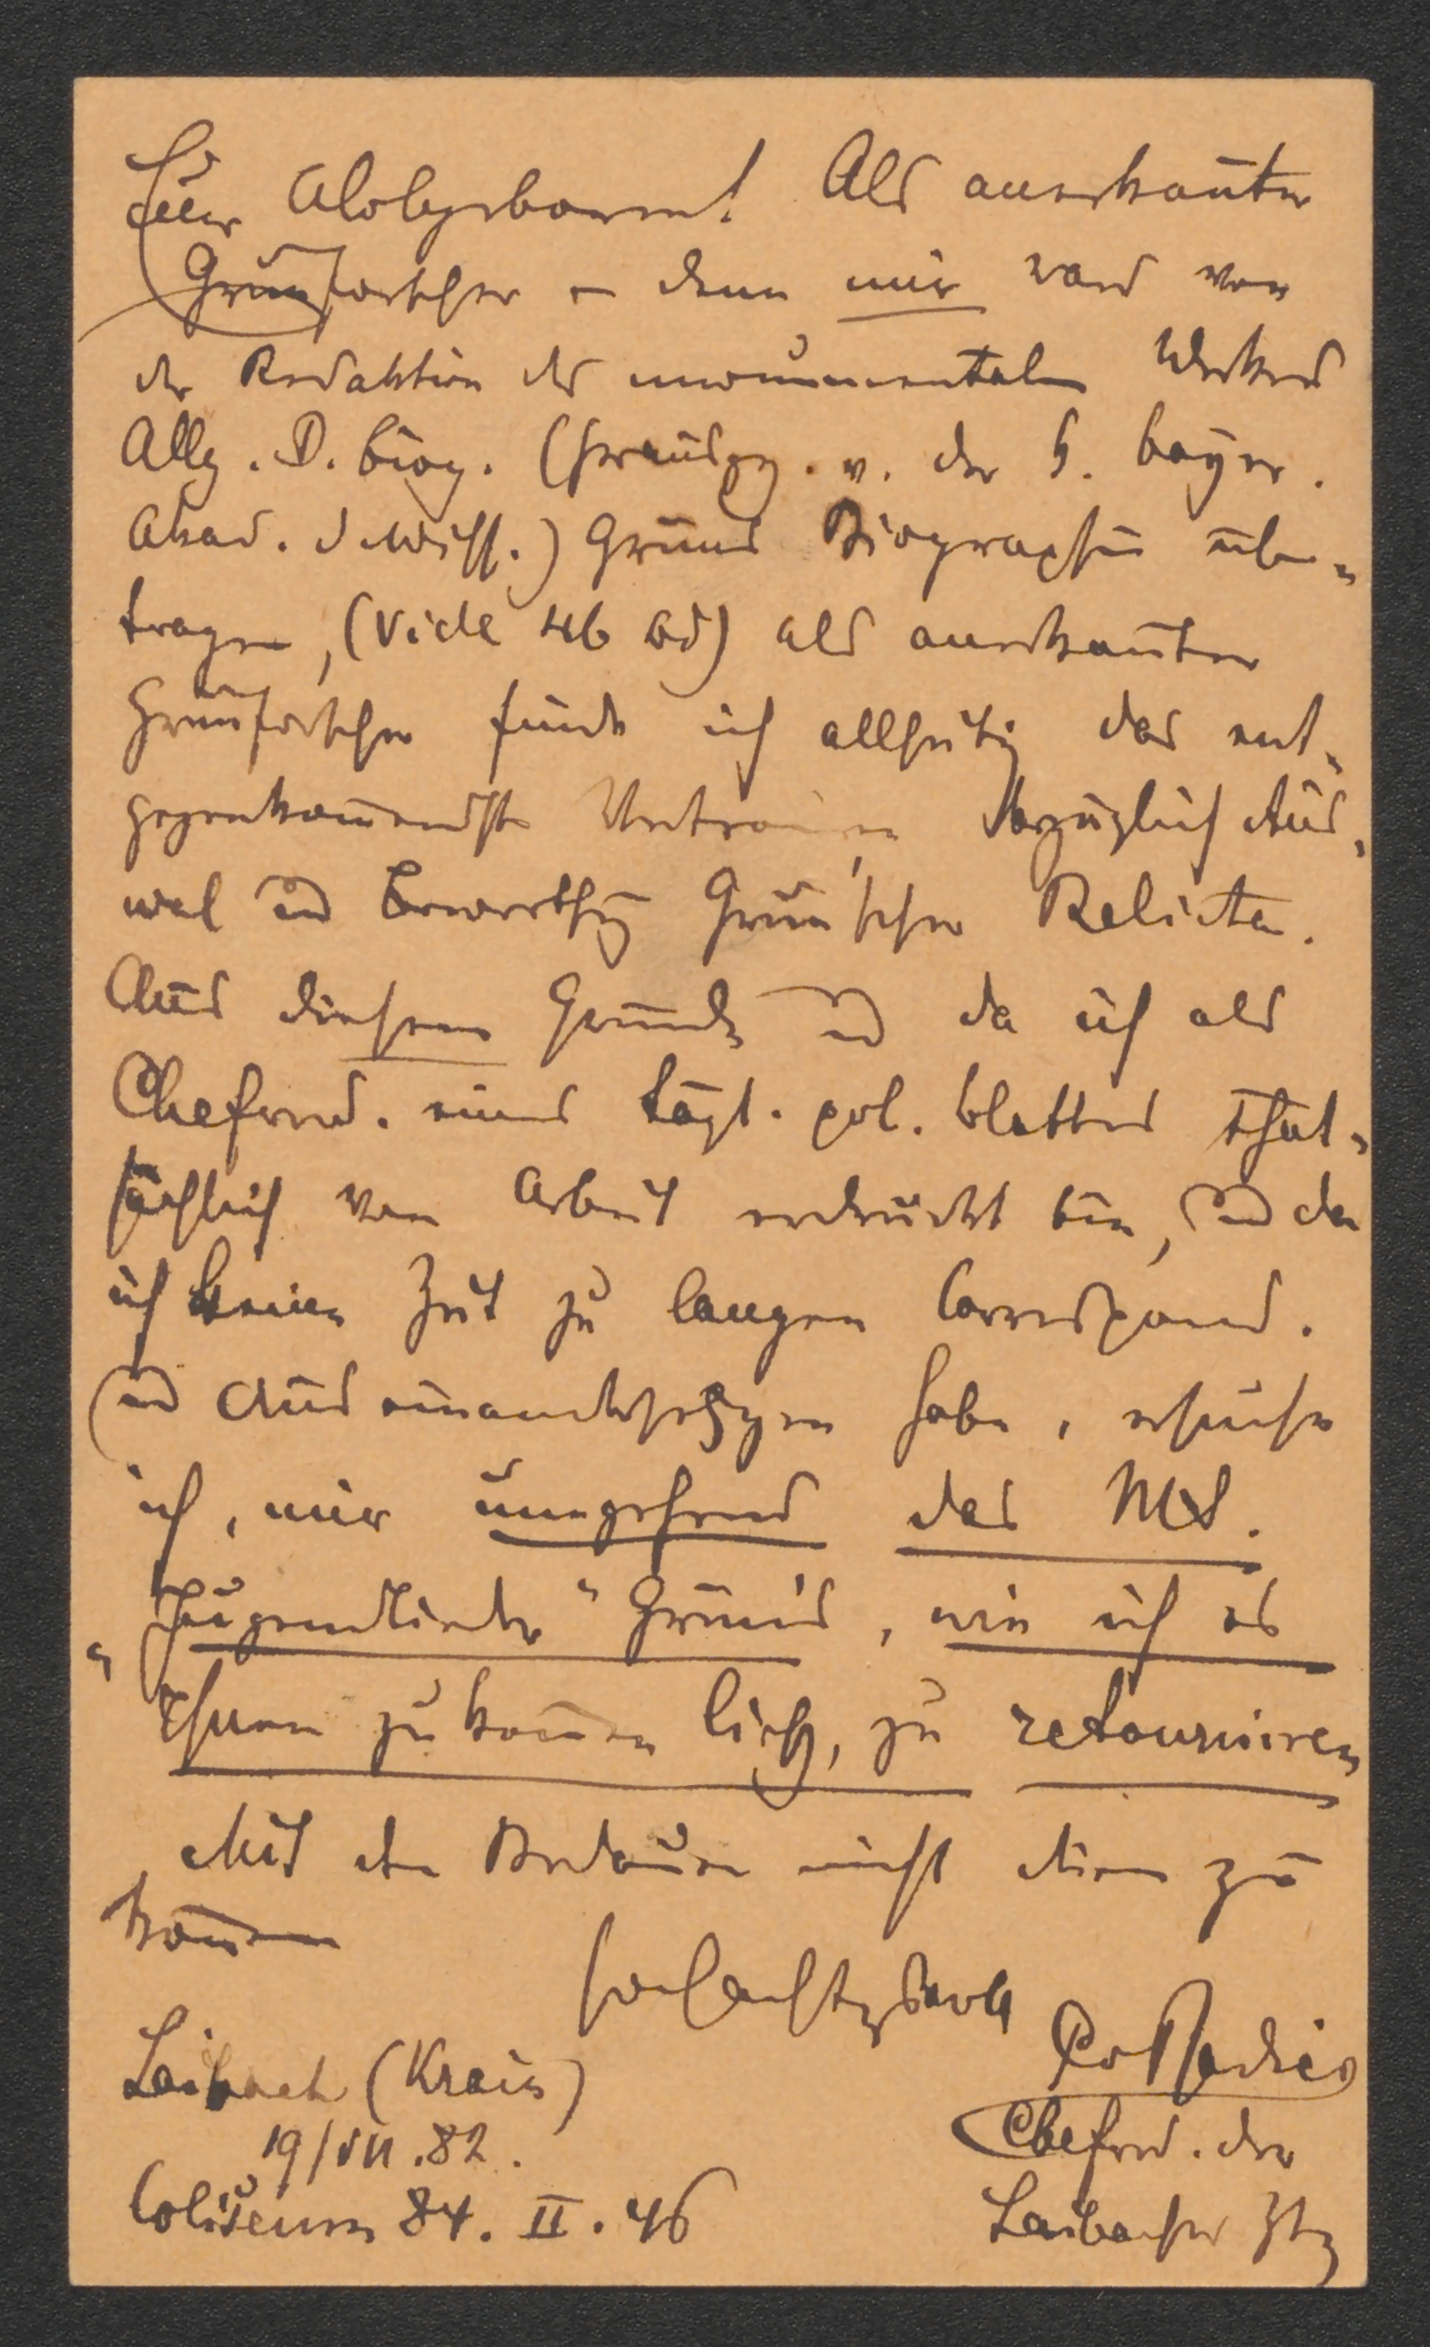 Euer Wolgeboren! Als anerkañter
Grünforscher – denn mir ward von
der Redaktion des monumentalen Werkes
Allg. D. Biog. (herausgg. v. der k. bayer.
Akad. d. Wiss.) Grüns Biographie über-
tragen, (vide 46 Bd) als anerkañter
Grünforscher finde ich allseitig das ent-
gegenkom̄endste Vertrauen bezüglich Aus-
wal und Bewerthg Grün'scher Relicten.
Aus diesem Grunde und da ich als
Chefred. eines tägl. pol. Blattes that-
sächlich von Arbeit erdrückt bin, und da
ich keine Zeit zu langen Correspond.
und Auseinandersetzgen habe, ersuche
ich, mir umgehend das MS.
„Jugendlieder" Grün's, wie ich es
Ihnen zukom̄en ließ, zu retourniren
Mit dem Bedauern nicht dienen zu
kön̄en
hochachtungsvoll
Laibach (Krain)
19/VII.82.
Chefred. der
Coliseum 84. II. 46
Laibacher Ztg